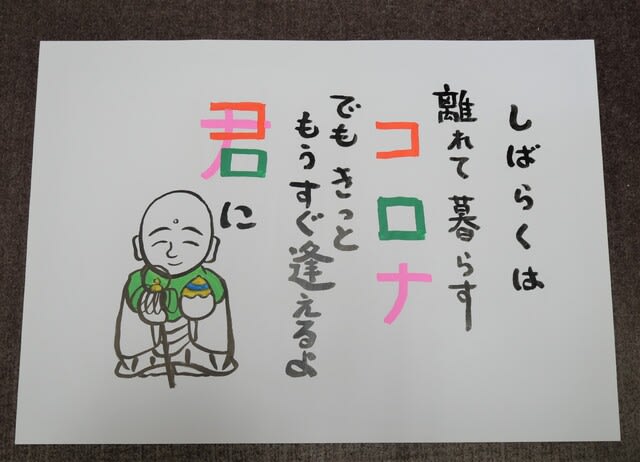 しばらくは
離れて暮らす
コロナ
でもきっと
もうすぐ逢えるよ
君に